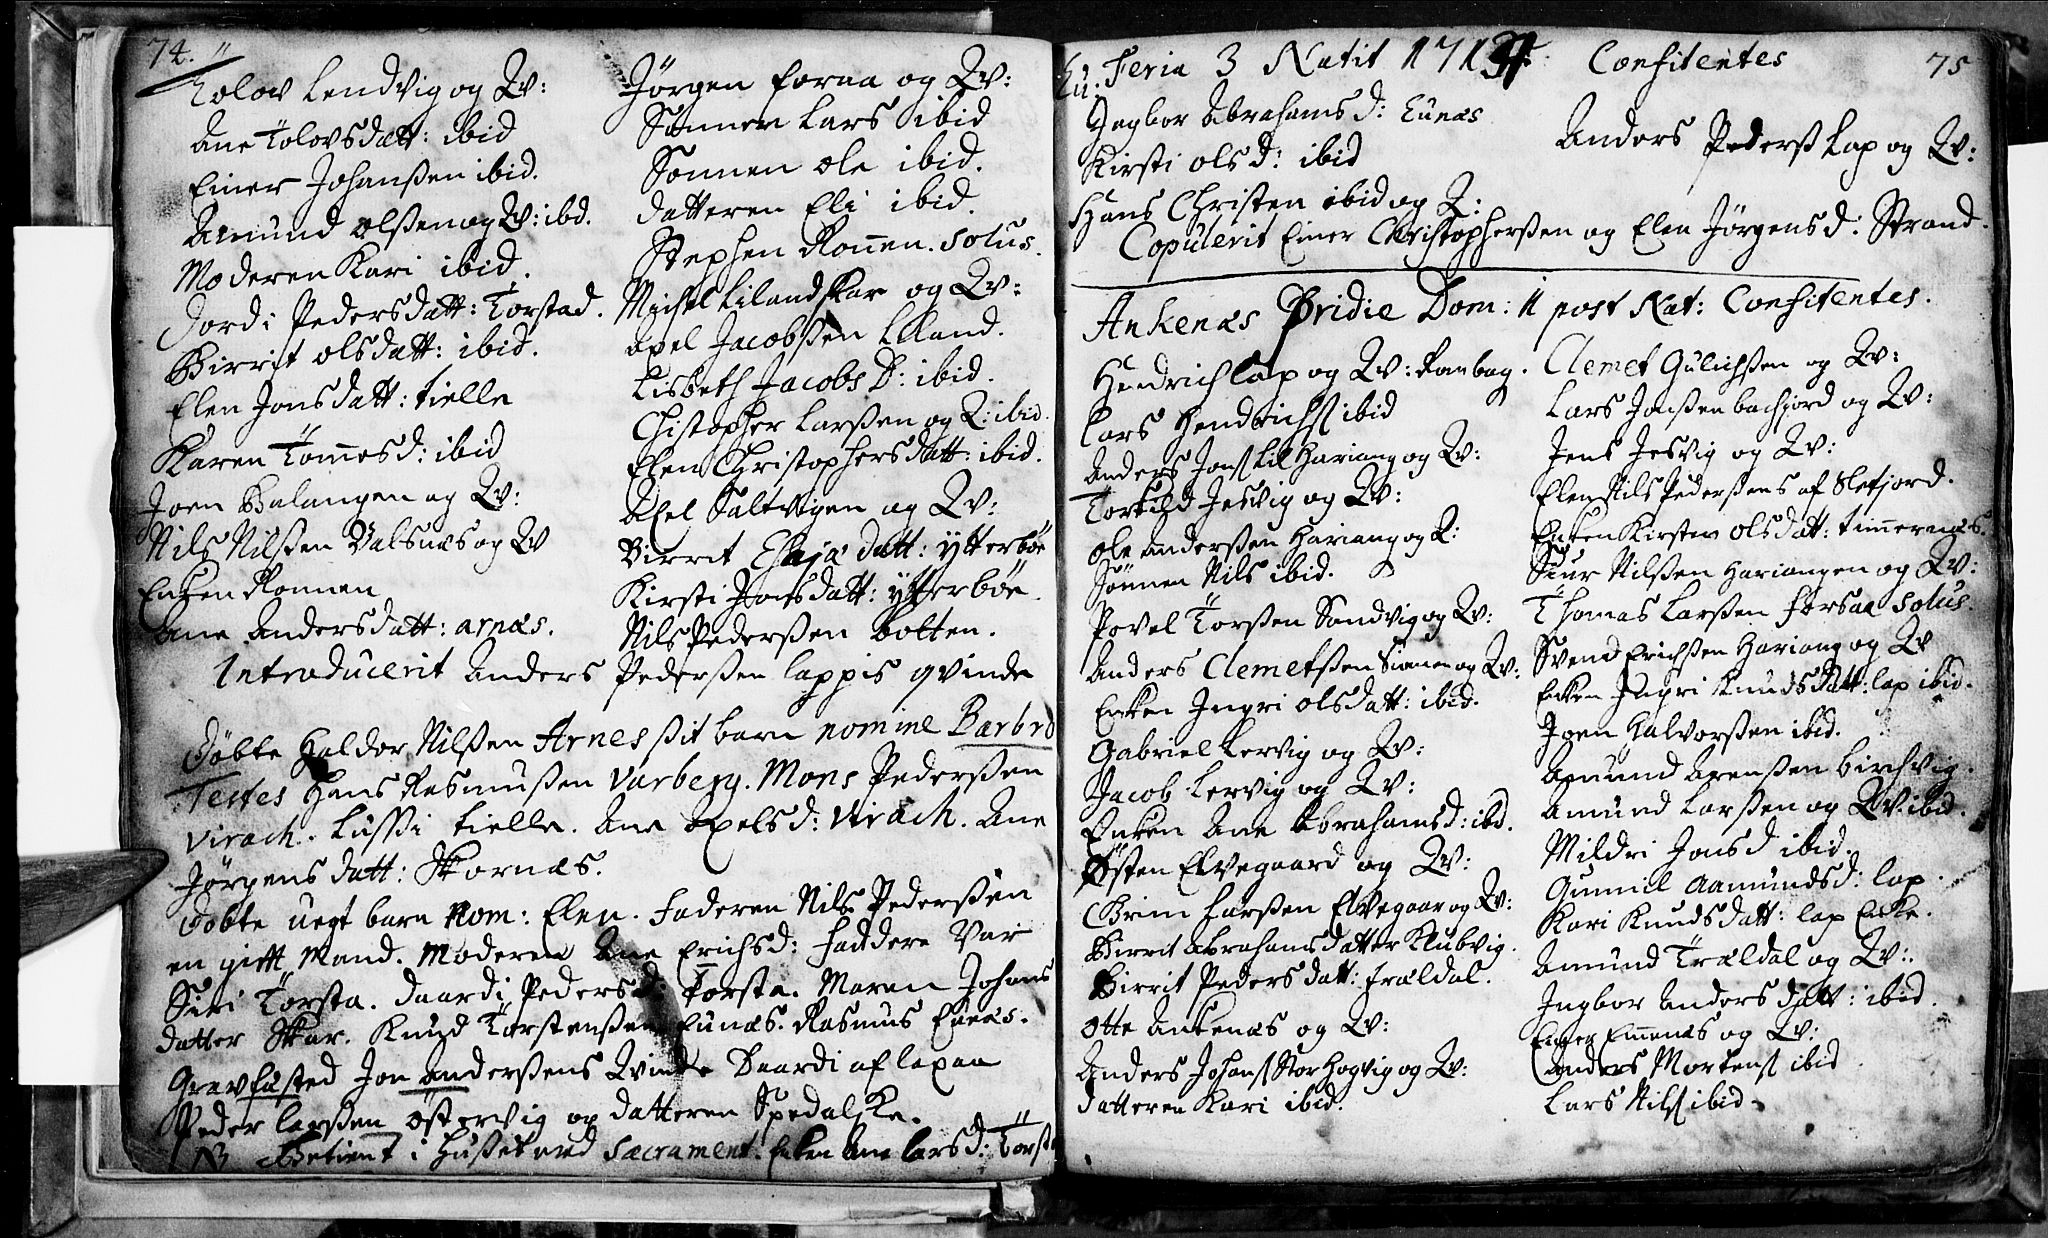 74.
Tolov Lendvig og Qv:
Ane Tolovsdatt: ibid
Einer Johanßen ibid.
Amund Olßen og Qv: ibd.
Moderen Kari ibid.
Dordi Pedersdatt: Torstad.
Birrit olsdatt: ibid.
Elen Jonsdatt: tielle
Karen Tomesd: ibid
Joen Balangen og Qv:
Nils Nilßen Valsnæs og Qv
Enken Ronnen
Ane Andersdatt: arnæs.
Jörgen foraa og Qv:
Sönnen Lars ibid
Sonnen ole ibid.
datteren Eli ibid.
Stephen Ronnen. solus.
Michel Lilandskar og Qv:
Apel Jacobßen Liland.
Lisbeth Jacobs D: ibid.
Chistopher Larßen og Q: ibid.
Elen Christophersdatt: ibid.
Axel Saltvigen og Qv:
Birrit datt: ytterböe
Kirsti Jonsdatt: ytterböe.
Nils Pederßen botten.
Introducerit Anders Pederßen lappis qvinde
Döbte Haldor Nilßen Arnes ßit barn nomine Barbro
Testes Hans Rasmußen Varberg. Mons Pederßen
Virach. Lussi tielle. Ane Apelsd: Virach. Ane
Jörgensdatt: Skornæs.
Döbte uegt barn Nom: Elen. Faderen Nils Pederßen
en gifft Mand. Moderen Ane Erichsd: Faddere Var
Siri Torsta. daardi Pedersd: Torsta. Maren Johans
datter Skar. Knud Torstenßen Eunæs. Rasmus
Gravfæsted Jon anderßens Qvinde Daardi af lapaa
Peder larßen östervig og datteren Spedalske.
NB Betient i Hußet med Sacrament. Enken Ane Larsd: Torst
75
Feria 3 Natit 171 Confitentes
Ingbor Abrahamsd: Eunæs
Kirsti ols d: ibid
Hans Christen ibid og Q:
Anders Pederß Lap og Qv:
Copulerit Einer Christopherßen og Elen Jörgensd: Strand.
Ankenæs Pridie Dom: 1 post Nat: Confitentes.
Hendrich lap og Qv: Rombag.
Lars Hendrichs ibid
Anders Jons lil Hariang og Qv:
Torkild Jesvig og Qv:
Ole Anderßen Hariang og Q:
Sönnen Nils ibid.
Povel Torßen Sandvig og Qv:
Anders Clemetßen og Qv:
Enken Ingri olsdatt: ibid.
Gabriel Lervig og Qv:
Jacob Lervig og Qv:
Enken Ane Abrahamsd: ibd.
Østen Elvegaard og Qv:
Brim Larßen Elvegaar og Qv:
Birrit Abrahamsdatter Klubvig.
Birrit Pedersdatt: trældal.
Otte Ankenæs og Qv:
Anders Johans Stor Hogvig og Qv:
datteren Kari ibid.
Clemet Gulichßen og Qv:
Lars Jonßen bachjord og Qv:
Jens Jesvig og Qv:
Elen Nils Pederßens af Slefjord.
Enken Kirsten Olsdatt: timernæs.
Siur Nilßen Hariangen og Qv:
Thomas Larßen forsaa solus.
Svend Erichßen Hariang og Qv
Enken Ingri Knudsdatt: lap ibid.
Joen Halvorßen ibid.
Amund Arenßen birchvig.
Amund Larßen og Qv. ibid.
Mildri Jonsd ibid.
Gunnil Aamundsd: lap.
Kari Knudsdatt: lap Enke.
Amund Træeldal og Qv:
Ingbor Andersdatt: ibid.
Emenæs og Qv:
Anders Mortens ibid
Lars Nils ibid.